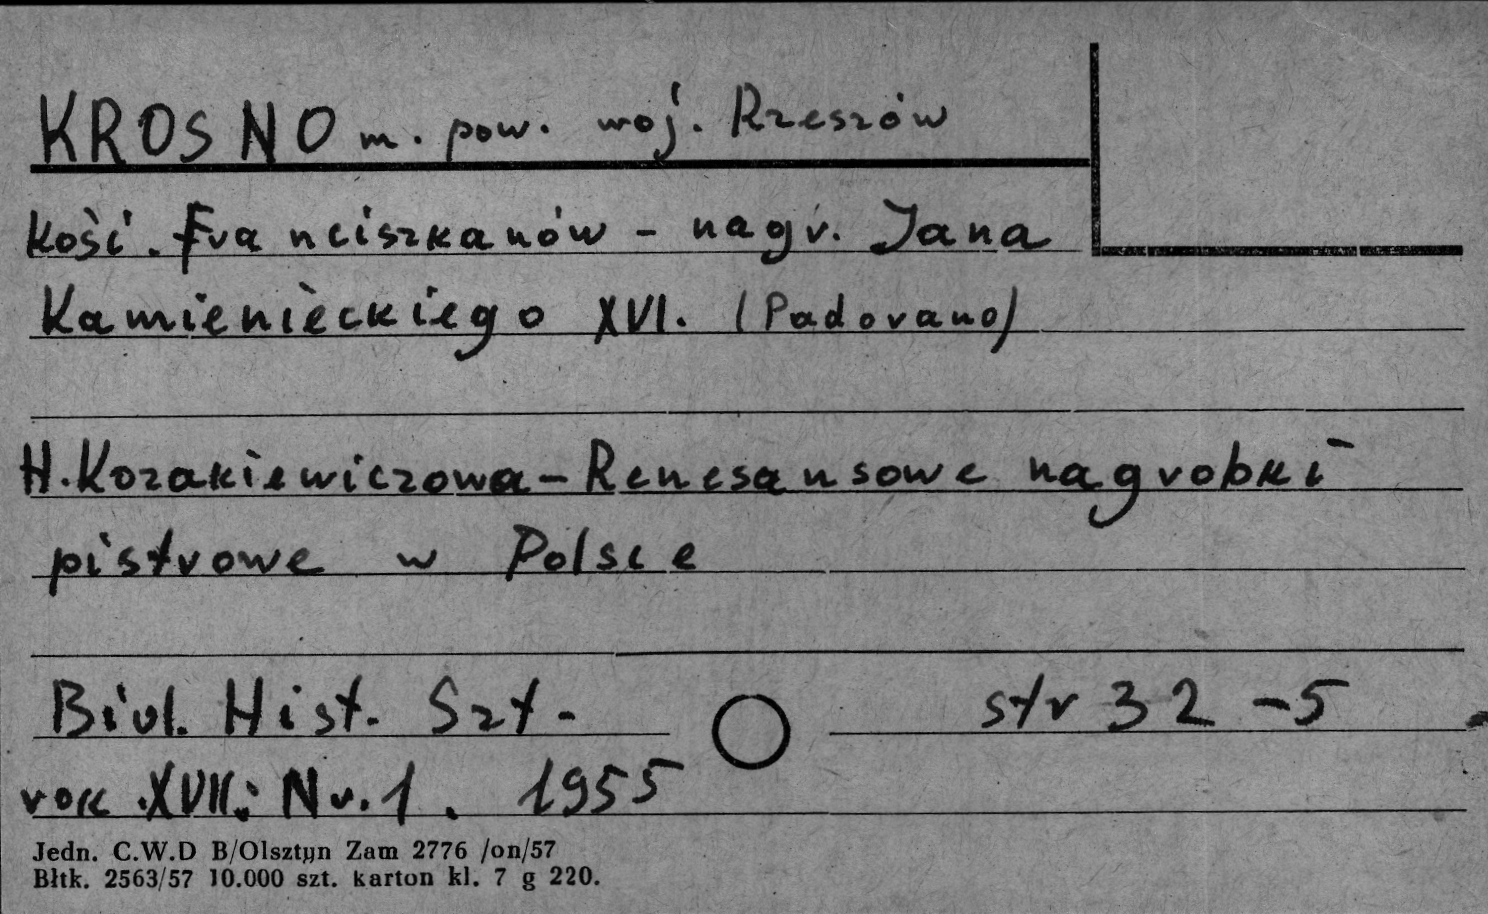 KROSNO m. pow. woj. Rzeszów
kość. Franciszkanów - nagr. Jana
Kamienieckiego XVI. (Padovano)
H. Kozakiewiczowa - Renesansowe nagrobki
piętrowe w Polsce
Biul. Hist. Szt. - str 32 - 5
rok XVII. Nr. 1. 1955
Jedn. C.W.D B/Olsztyn Zam 2776 /on/57
Błtk. 2563/57 10.000 szt. karton kl. 7 g 220.